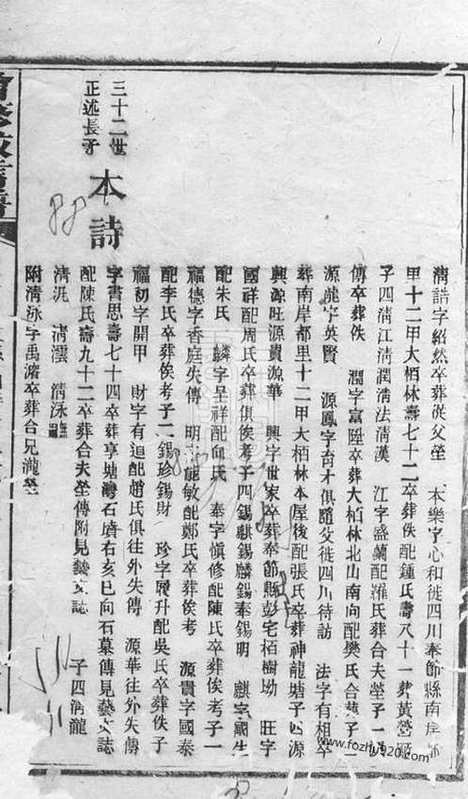 清誥字紹然卒葬從父塋 本樂字心和徙四川奉節縣南岸都
里十二甲大栢林壽七十二卒葬佚配鍾氏壽八十一葬黃營
子四清江清潤清法清漢 江字盛蘭配羅氏葬合夫塋子一
傅卒葬佚 潤字富陞卒葬大栢林北山南向配樊氏合葬子二
源龍字英賢 源鳳字奇才俱隨父徙四川待訪 法字有相卒
葬南岸都里十二甲大栢林本屋後配張氏卒葬神龍塘子四源
興源旺源貴源華 興字世家卒葬奉節縣彭宅栢樹坳 旺字
國祥配周氏卒葬俱俟考子四錫麒錫麟錫奉錫明 麒字
配朱氏 麟字呈祥配向氏 奉字慎修配陳氏卒葬俟考子一
福德字香庭失傳 明字 敏配鄭氏卒葬俟考 源貴字國泰
配李氏卒葬俟考子二錫珍錫財 珍字履升配吳氏卒葬佚子
福初字開甲 財字有迴配趙氏俱往外失傳 源華往外失傳
三十二世
正述長子
本詩
字書思壽七十四卒葬享塘灣石嘴右亥巳向石墓傳見藝文誌
配陳氏壽九十二卒葬合夫塋傳附見藝文誌 子四清瀧
清洸 清澐 清泳
附清泳字禹濬卒葬合兄瀧塋
www.fozhu920.com